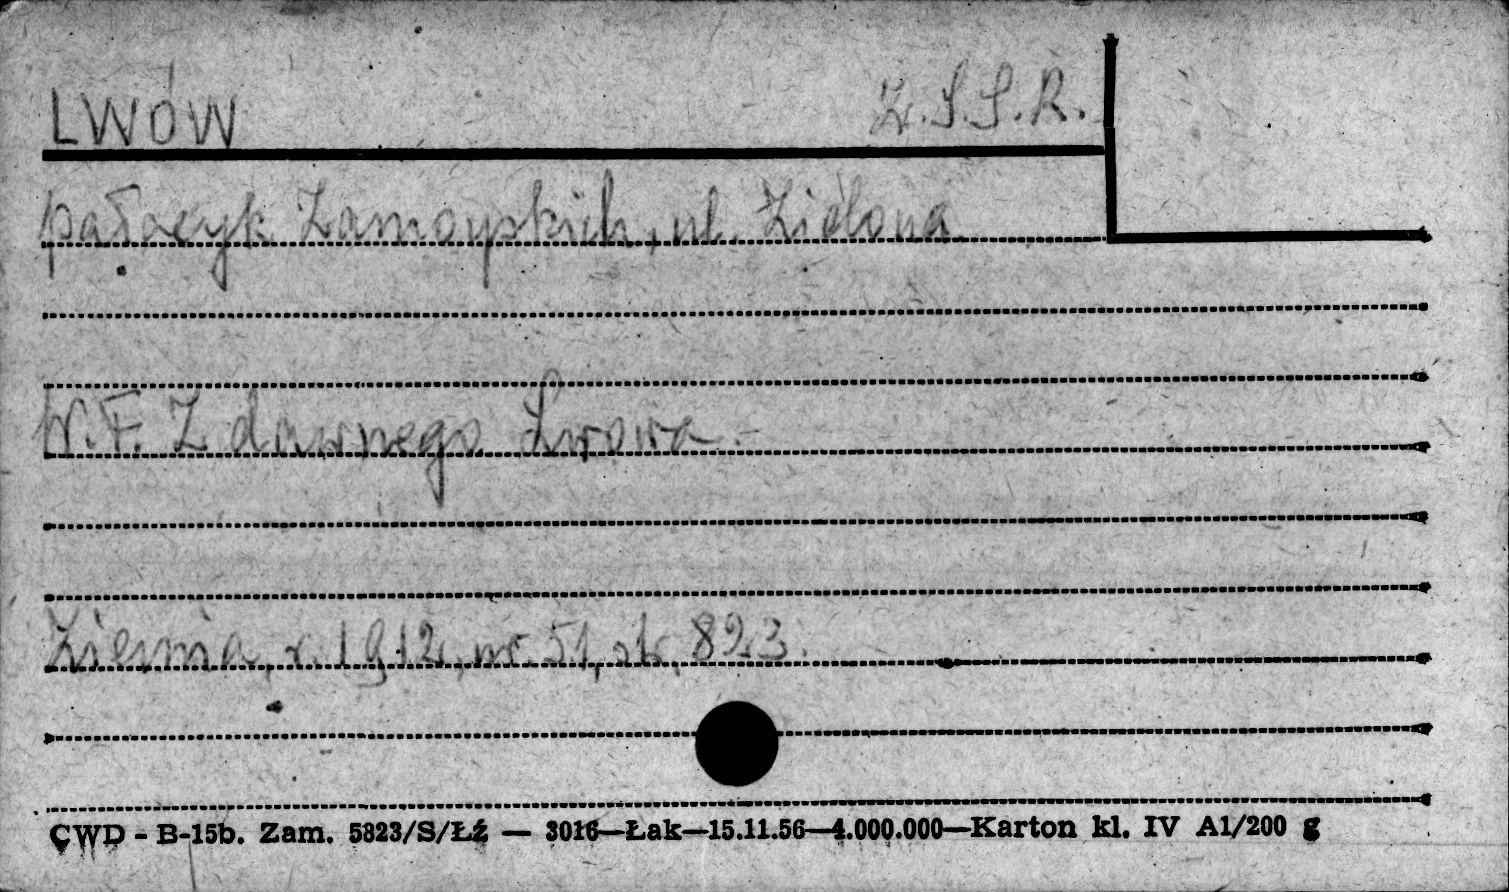 LWÓW Z.S.S.R.
pałacyk Zamoyskich, ul. Zielona
W.F. Z dawnego Lwowa.-
Ziemia, r. 1912, nr. 51, str. 823.
CWD - B-15b. Zam. 5823/S/Łź — 3016—Łak—15.11.56—4.000.000—Karton kl. IV A1/200 g